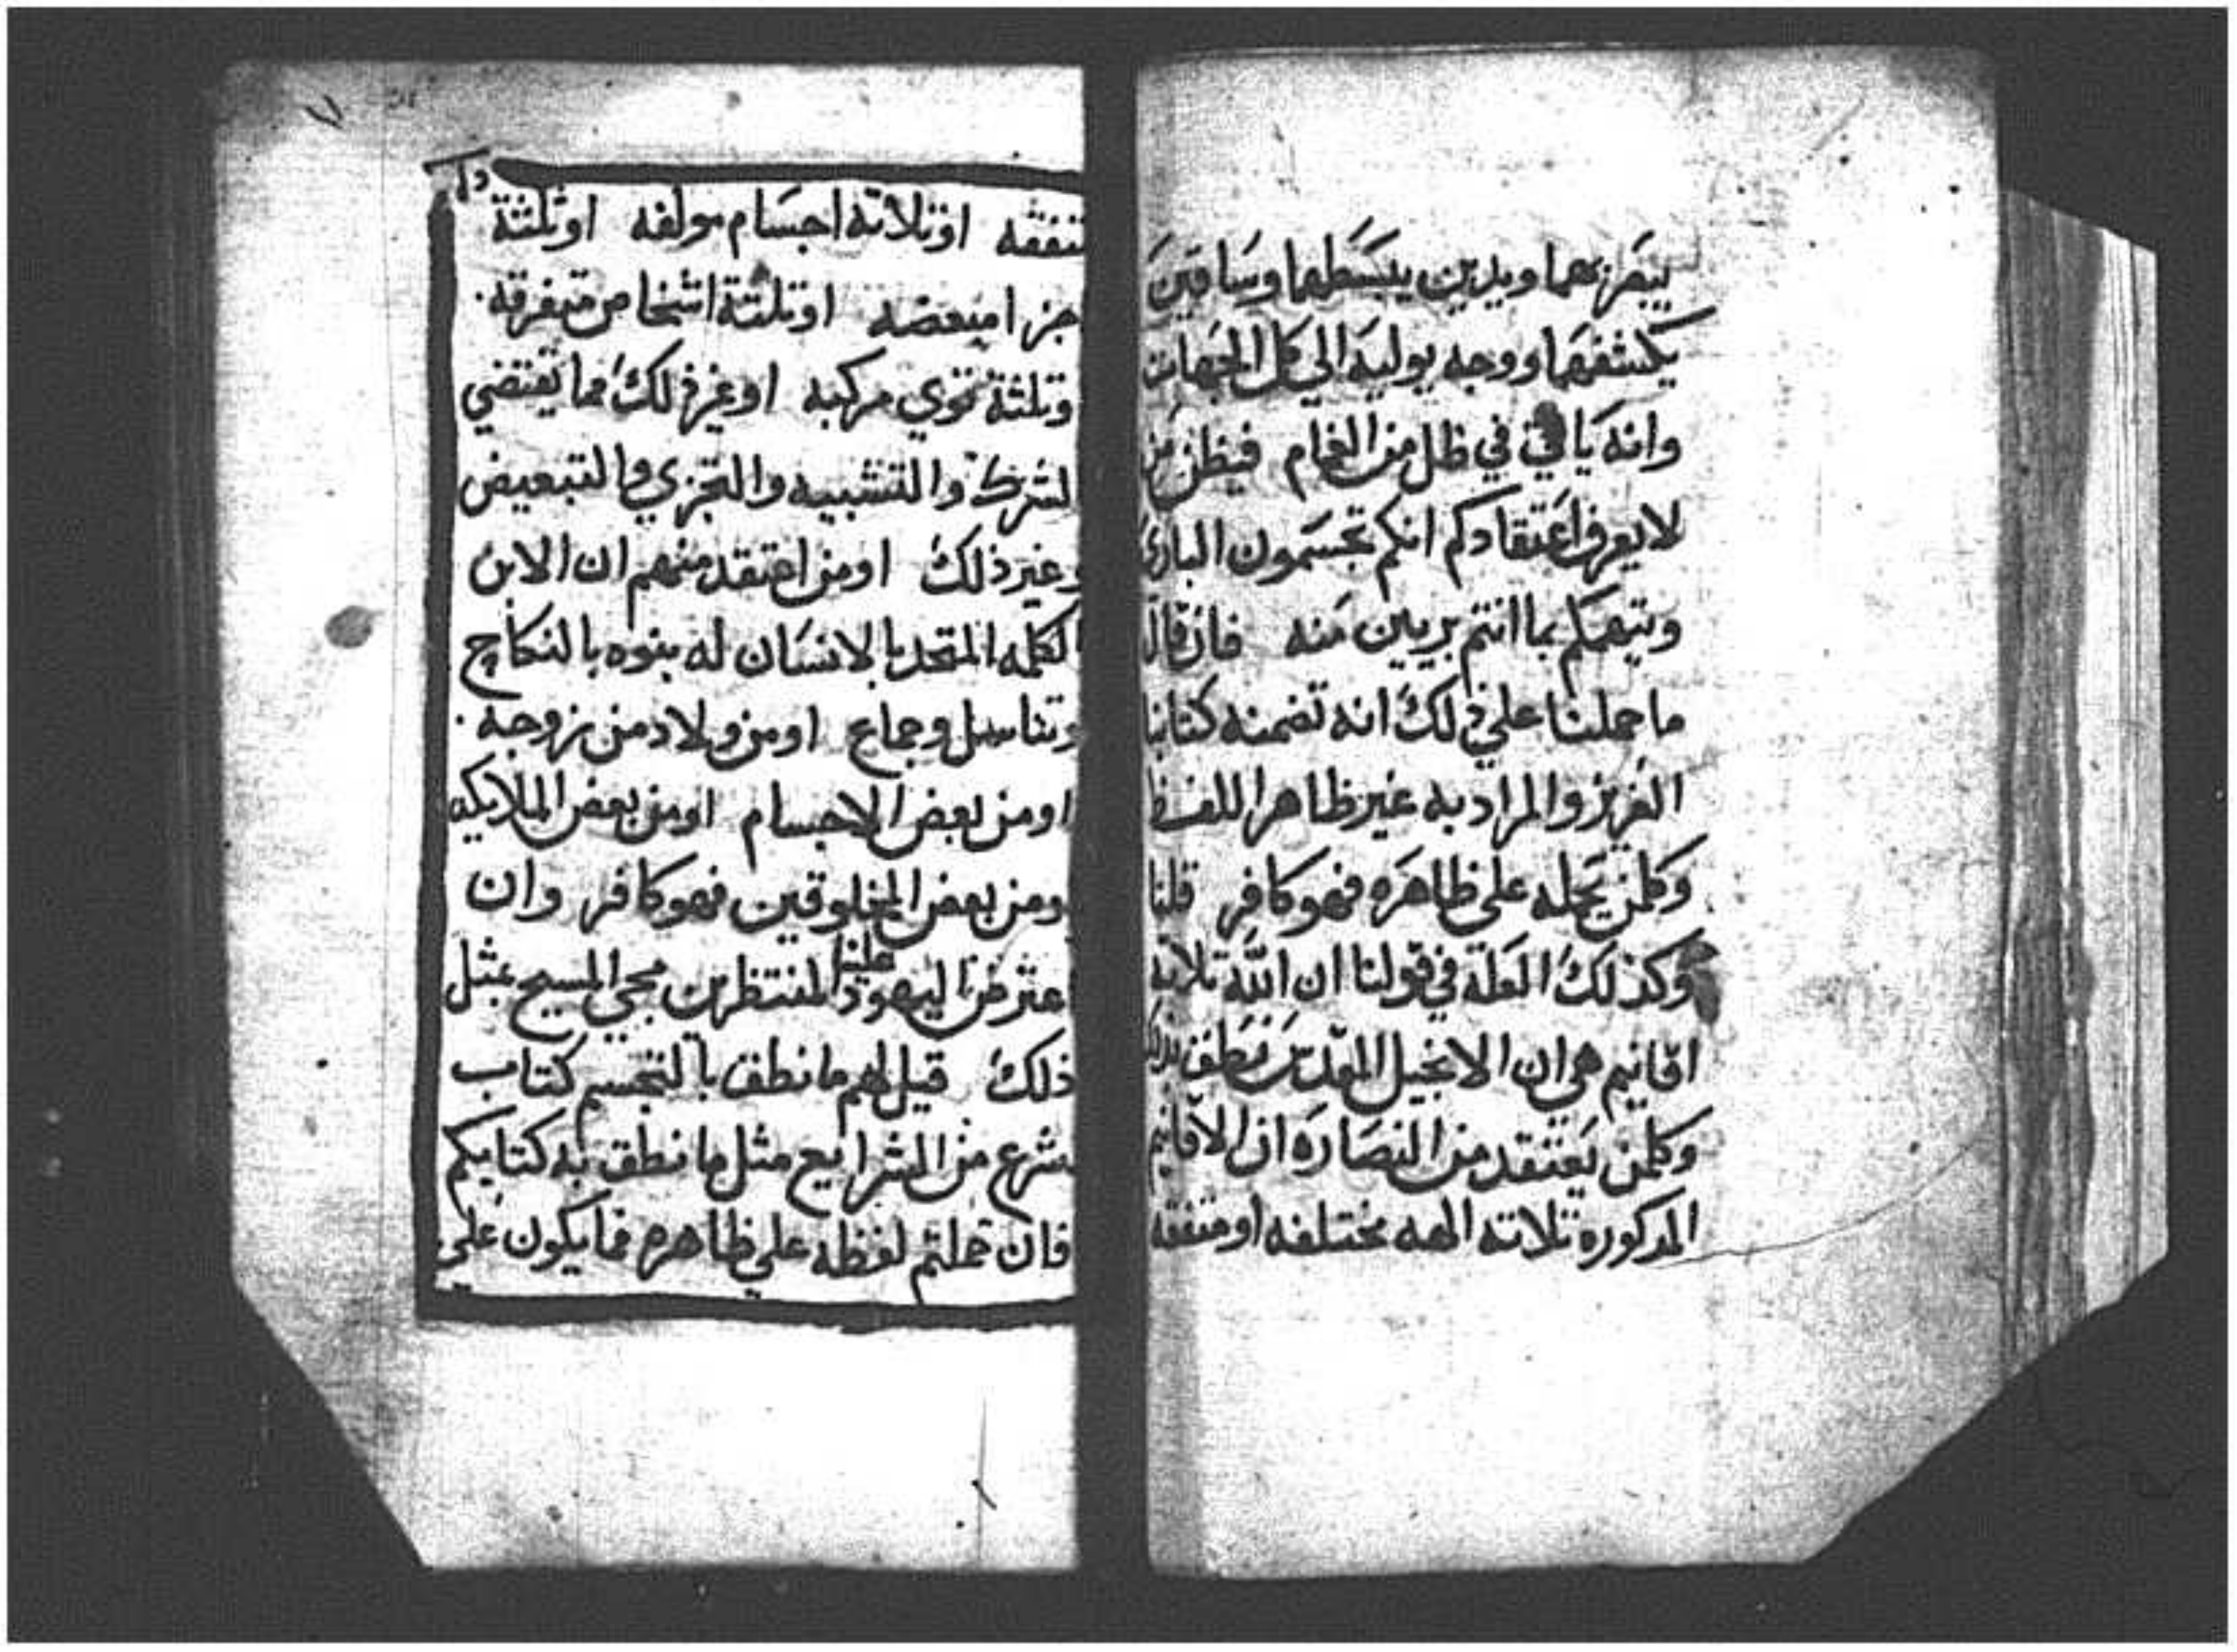 يبصر بهما ويدين يبسطهما وساقين
يكشفهما ووجه يوليه الي كل الجهات
وانه ياتي في ظلل من الغمام فيظن من
لا يعرف اعتقادكم انكم تجسمون الباري
ويتهمكم بما انتم بريين منه فان قال
ما حملنا علي ذلك انه تضمنه كتابنا
العزيز والمراد به غير ظاهر اللفظ
وكلمن يحمله علي ظاهره فهو كافر قلنا
وكذلك العلة في قولنا ان الله تلاتة
اقانيم هي ان الانجيل المقدس نطق بذلك
وكلمن يعتقد من النصاره ان الاقانيم
المدكوره تلاته الهه مختلفه او متفقه
متفقه او تلاته اجسام مولفه او تلثة
اجزا متبعضه او تلثة اشخاص متفرقه
وتلثة قوي مركبه او غير ذلك مما يقتضي
الشرك والتشبيه والتجزي والتبعيض
وغير ذلك او من اعتقد منهم ان الابن
الكلمه المتحد بالانسان له بنوه بالنكاح
وتناسل وجماع او من ولاد من زوجه
او من بعض الاجسام او من بعض الملايكه
ومن بعض المخلوقين فهو كافر وان
اعترض علينا اليهود المنتظرين مجي المسيح بمثل
ذلك قيل لهم ما نطق بالتجسم كتاب
شرع من الشرايع مثل ما نطق به كتابكم
فان حملتم لفظه علي ظاهره فما يكون علي